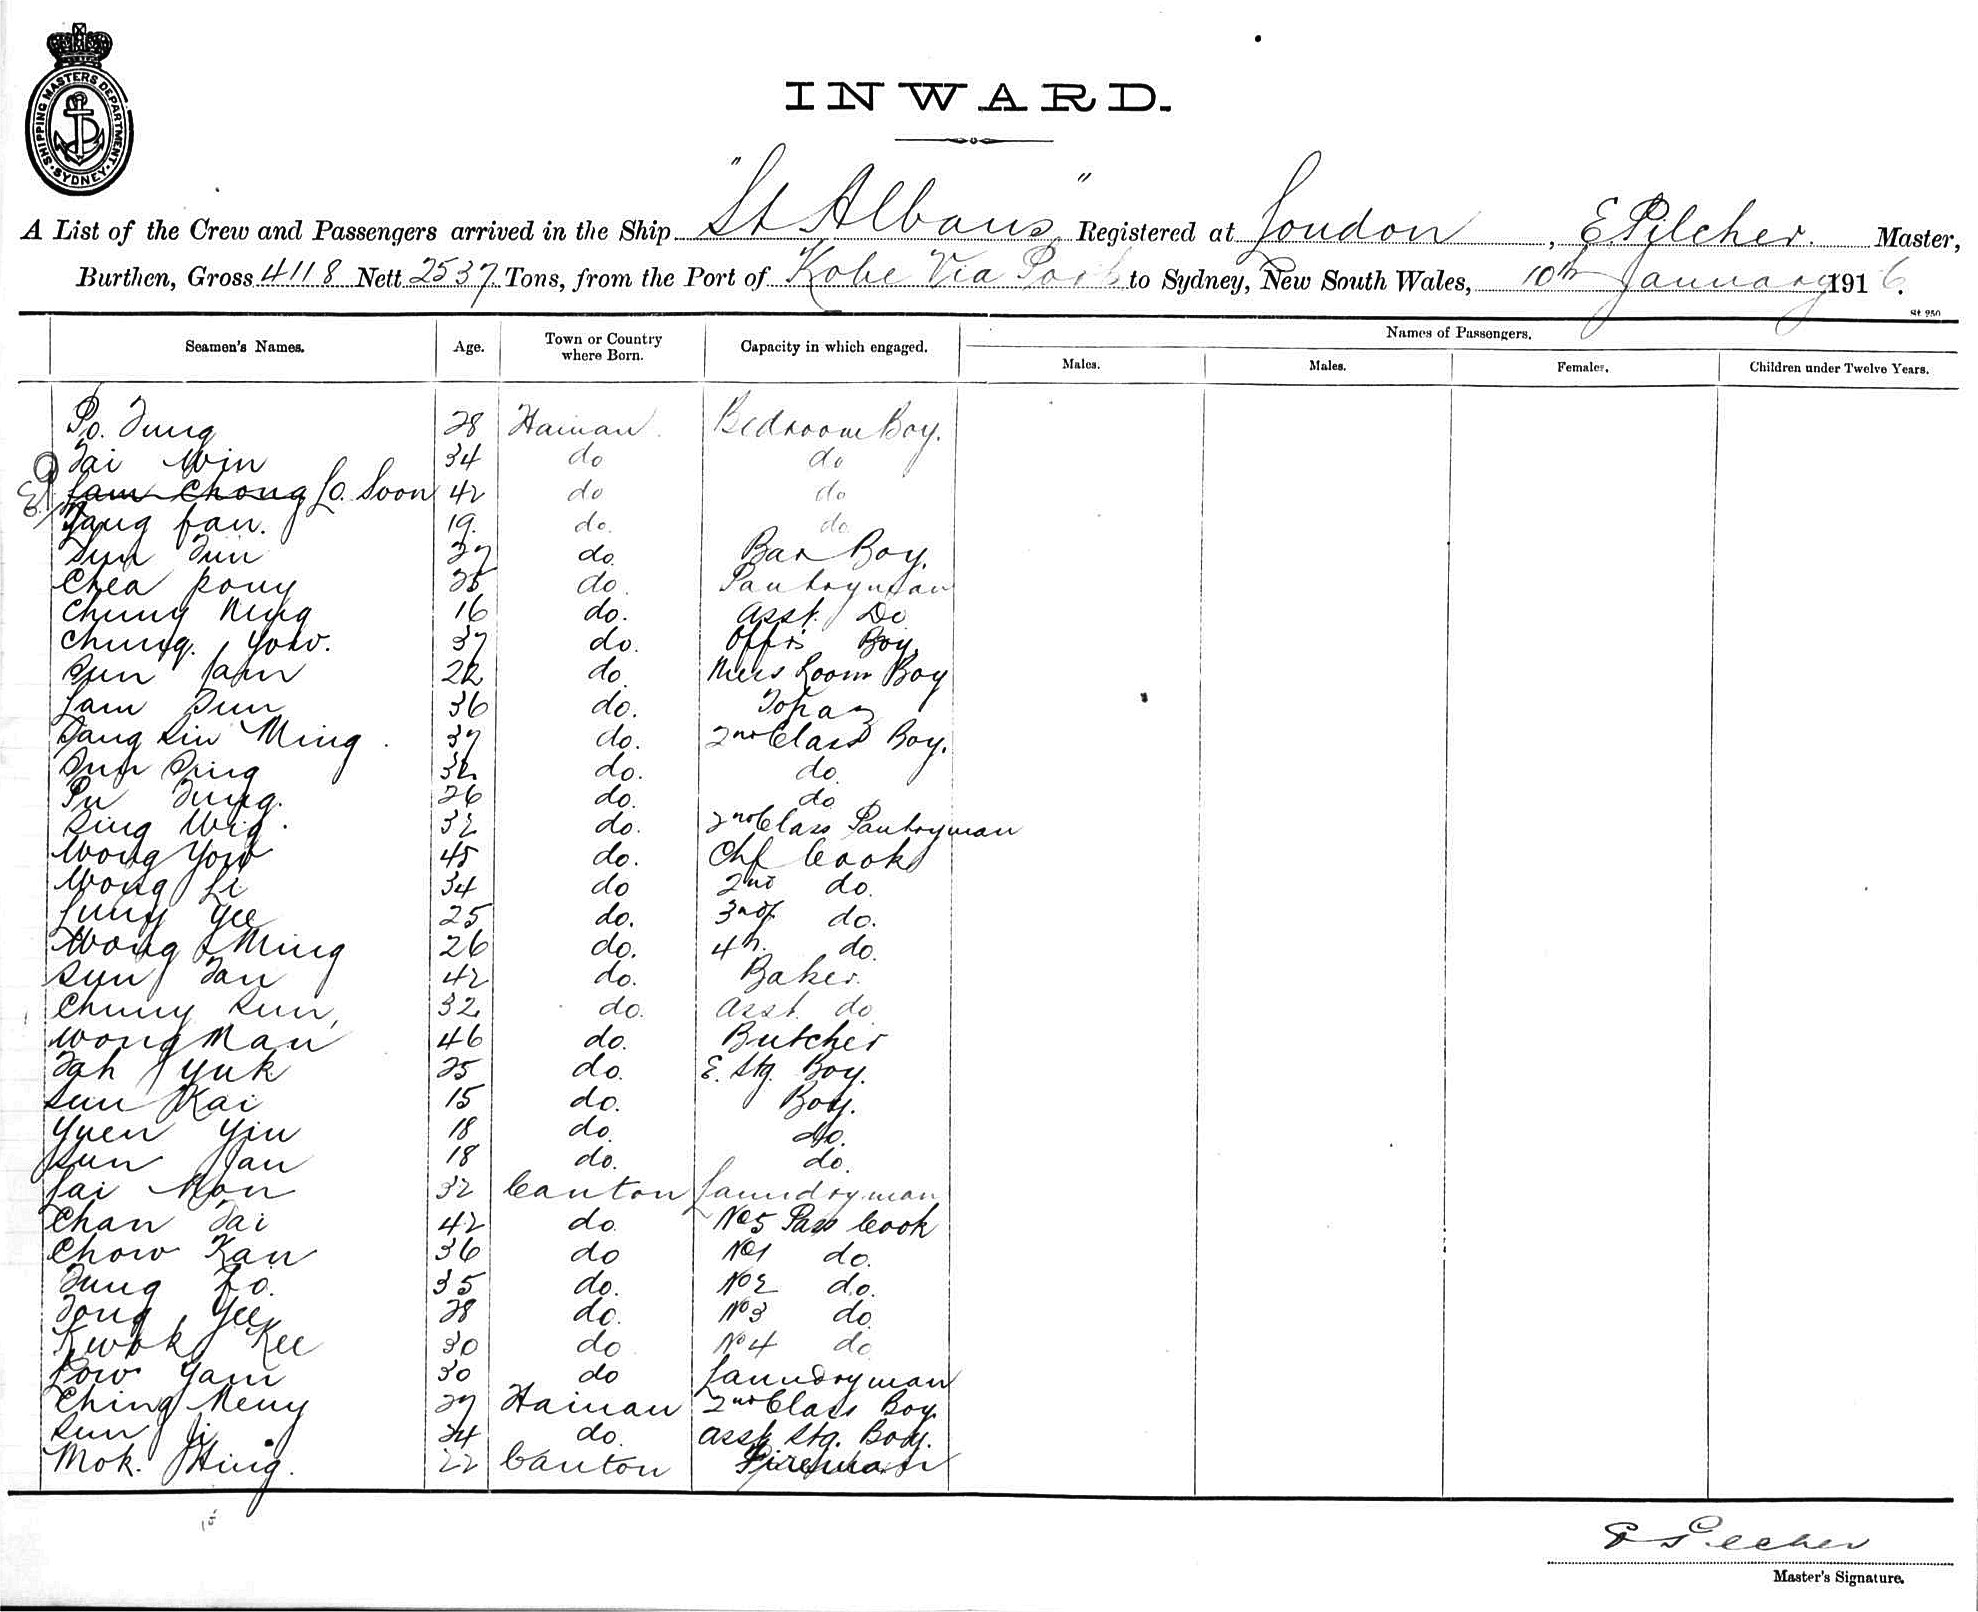 SHIPPING MASTERS DEPARTMENT. SYDNEY.
INWARD.
A List of the Crew and Passengers arrived in the Ship "St Albans" Registered at London, E Pilcher. Master,
Burthen, Gross 4118 Nett 2537. Tons, from the Port of Kobe Via Ports to Sydney, New South Wales, 10th January 1916.
St 250
Seamen's Names. Age. Town or Country where Born. Capacity in which engaged. Names of Passengers.
Males. Males. Females. Children under Twelve Years.
Po. Tung 28 Hainan. Bedroom Boy.
Tai Win 34 do do
Lam Chong Lo. Soon 42 do do
Fan. 19. do. do
Sun 27 do. Bar Boy.
Chea 25 do. Pantryman
Chung Ning 16 do. Asst. Do
Chung. Yow. 37 do. Offrs Boy.
Sun 22 do. Mess Room Boy
Lam Sun 36 do. Topaz
Ming. 37 do. 2nd Class Boy.
32 do. do.
Pu Tung. 26 do. do
32 do. 2nd Class Pantryman
Wong Yow 45 do. Chf Cook
Wong Li 34 do 2nd do.
Lung Yee 25 do. 3rd do.
Wong Ming 26 do. 4th. do.
Sun Tan 42 do. Baker.
Chung Sun, 32 do. Asst. do
Wong Man 46 do. Butcher
Tah Yuk 25 do. E. Stg. Boy.
Sun Kai 15 do. Boy.
Yuen Yin 18 do. do.
Sun 18 do. do.
Lai Mon 32 Canton Laundryman
Chan Tai 42 do. No5 Pass Cook
Chow Kan 36 do No1 do.
Tung Fo. 35 do. No2 do.
Tong Yee 28 do. No3 do.
Kwok Kee 30 do No4 do
Low Yam 30 do Laundryman
Ching Meny 27 Hainan 2nd Class Boy.
Sun Ji 24 do. Asst. Stg. Boy.
Mok. Hing. 22 Canton Fireman
E Pilcher
Master's Signature.